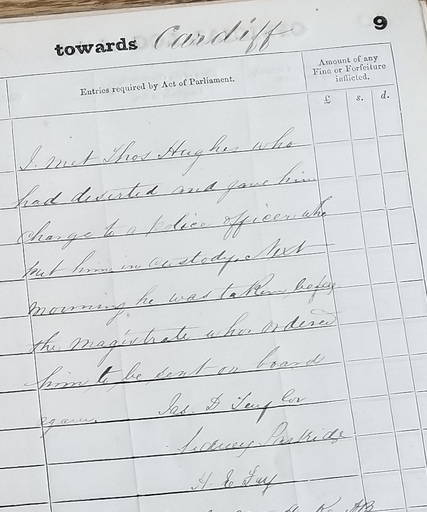 towards Cardiff
9
Entries required by Act of Parliament.
Amount of any
Fine or Forfeiture
inflicted.
£ s. d.
I met Thos Hughes who
had deserted and gave him
charge to a Police officer who
put him in custody. Next
morning he was taken before
the magistrate who ordered
him to be sent on board
again. Jas. D Taylor
Sidney
H